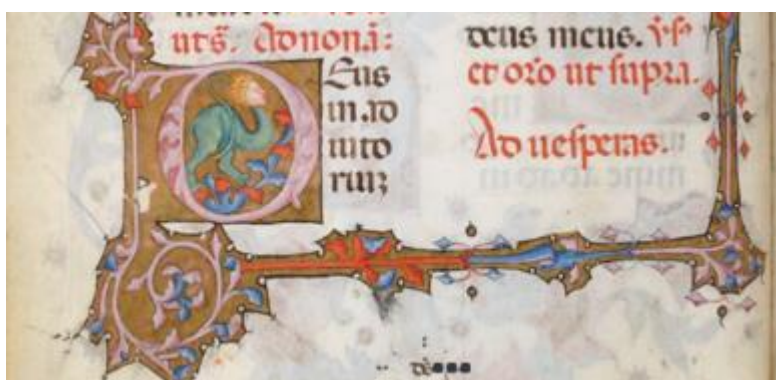 utš. Ad non.i:
Deus
in ad
iuto
rium
deus meus. v̓s̓
et oro ut supra.
Ad uesperas.